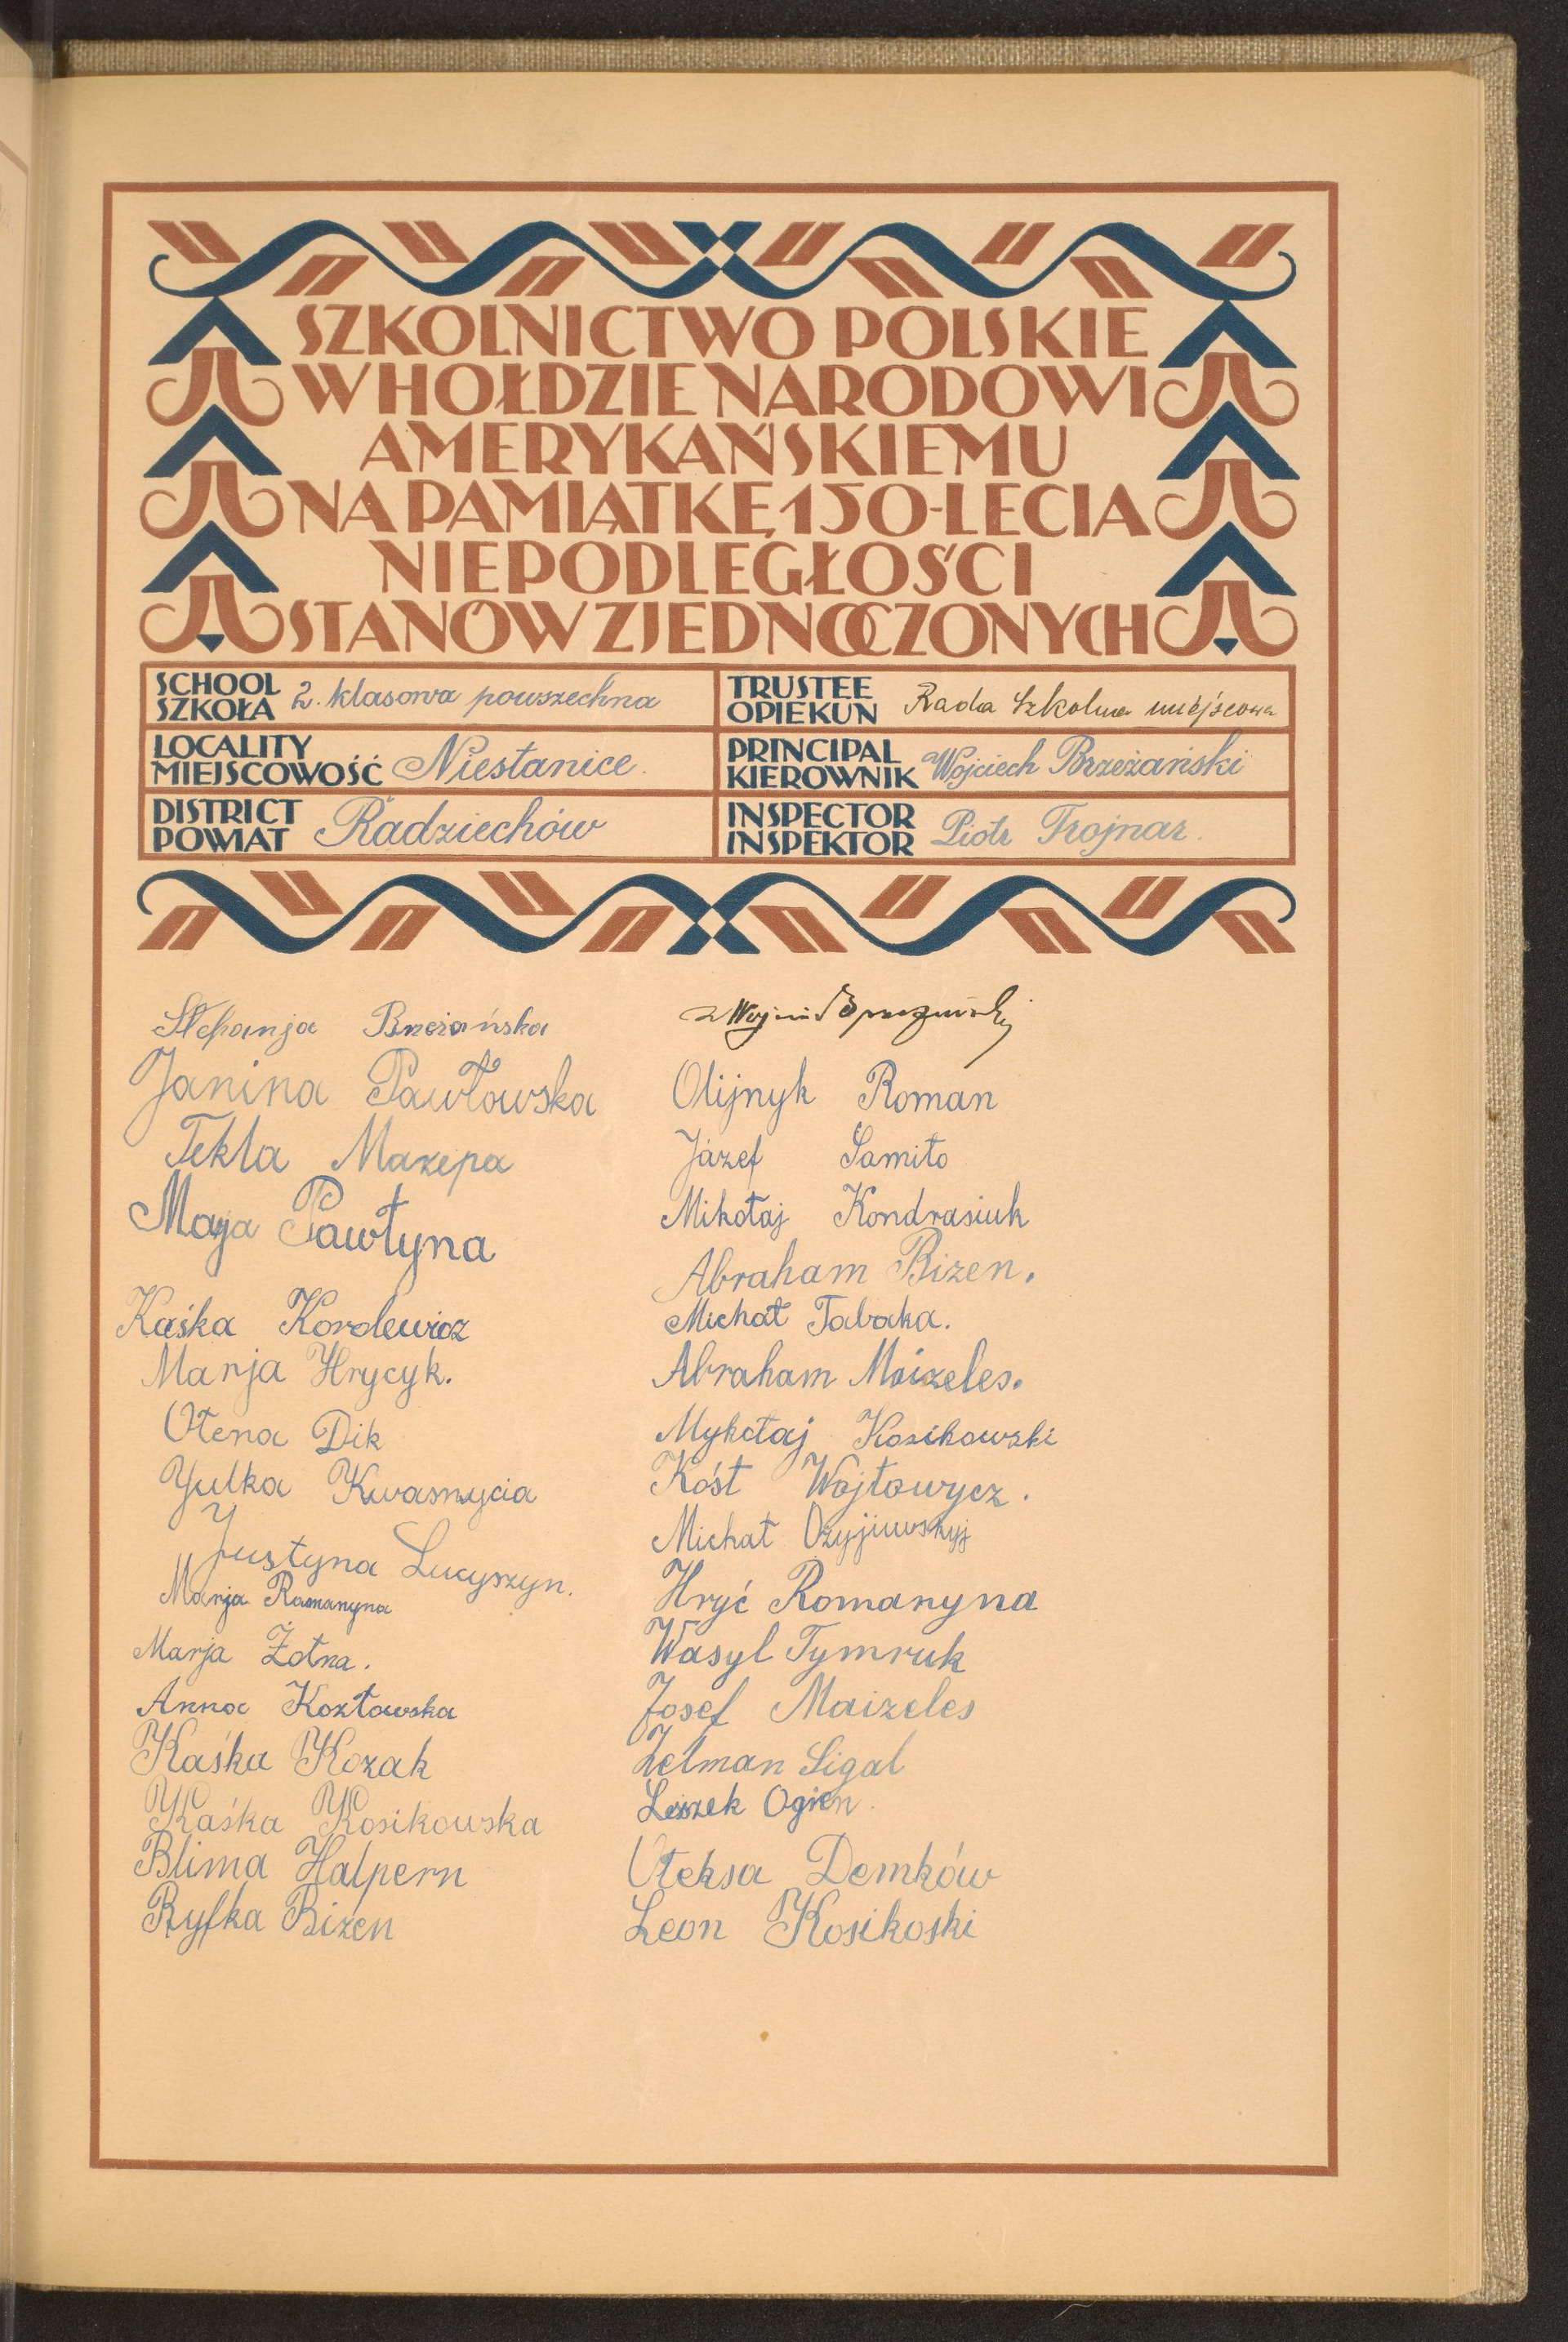 SZKOLNICTWO POLSKIE
W HOŁDZIE NARODOWI
AMERYKAŃSKIEMU
NA PAMIĄTKĘ 150-LECIA
NIEPODLEGŁOŚCI
STANÓW ZJEDNOCZONYCH
SCHOOL
SZKOŁA 2. klasowa powszechna
TRUSTEE
OPIEKUN Rada Szkolna miejscowa
LOCALITY
MIEJSCOWOŚĆ Niestanice.
PRINCIPAL
KIEROWNIK Wojciech Brzeżański
DISTRICT
POWIAT Radziechów
INSPECTOR
INSPEKTOR Piotr Trojnar.
Stefanja Brzeżańska
Janina Pawłowska
Tekla Mazepa
Marja Pawłyna
Kaśka Korolewicz
Marja Hrycyk.
Ołena Dik
Yulka Kwasnycia
Justyna Lucyszyn.
Marja Romanyna
Marja Żołna.
Anna Kozłowska
Kaśka Kozak
Kaśka Kosikowska
Blima Halpern
Ryfka Bizen
Olijnyk Roman
Józef Samiło
Mikołaj Kondrasiuk
Abraham Bizen.
Michał Tabaka.
Abraham Maizeles.
Mykołaj Kosikowski
Kośt Wojtowycz.
Michał
Hryć Romanyna
Wasyl Tymruk
Josef Maizeles
Zelman Sigal
Leiszek Ogien.
Ołeksa Demków
Leon Kosikoski